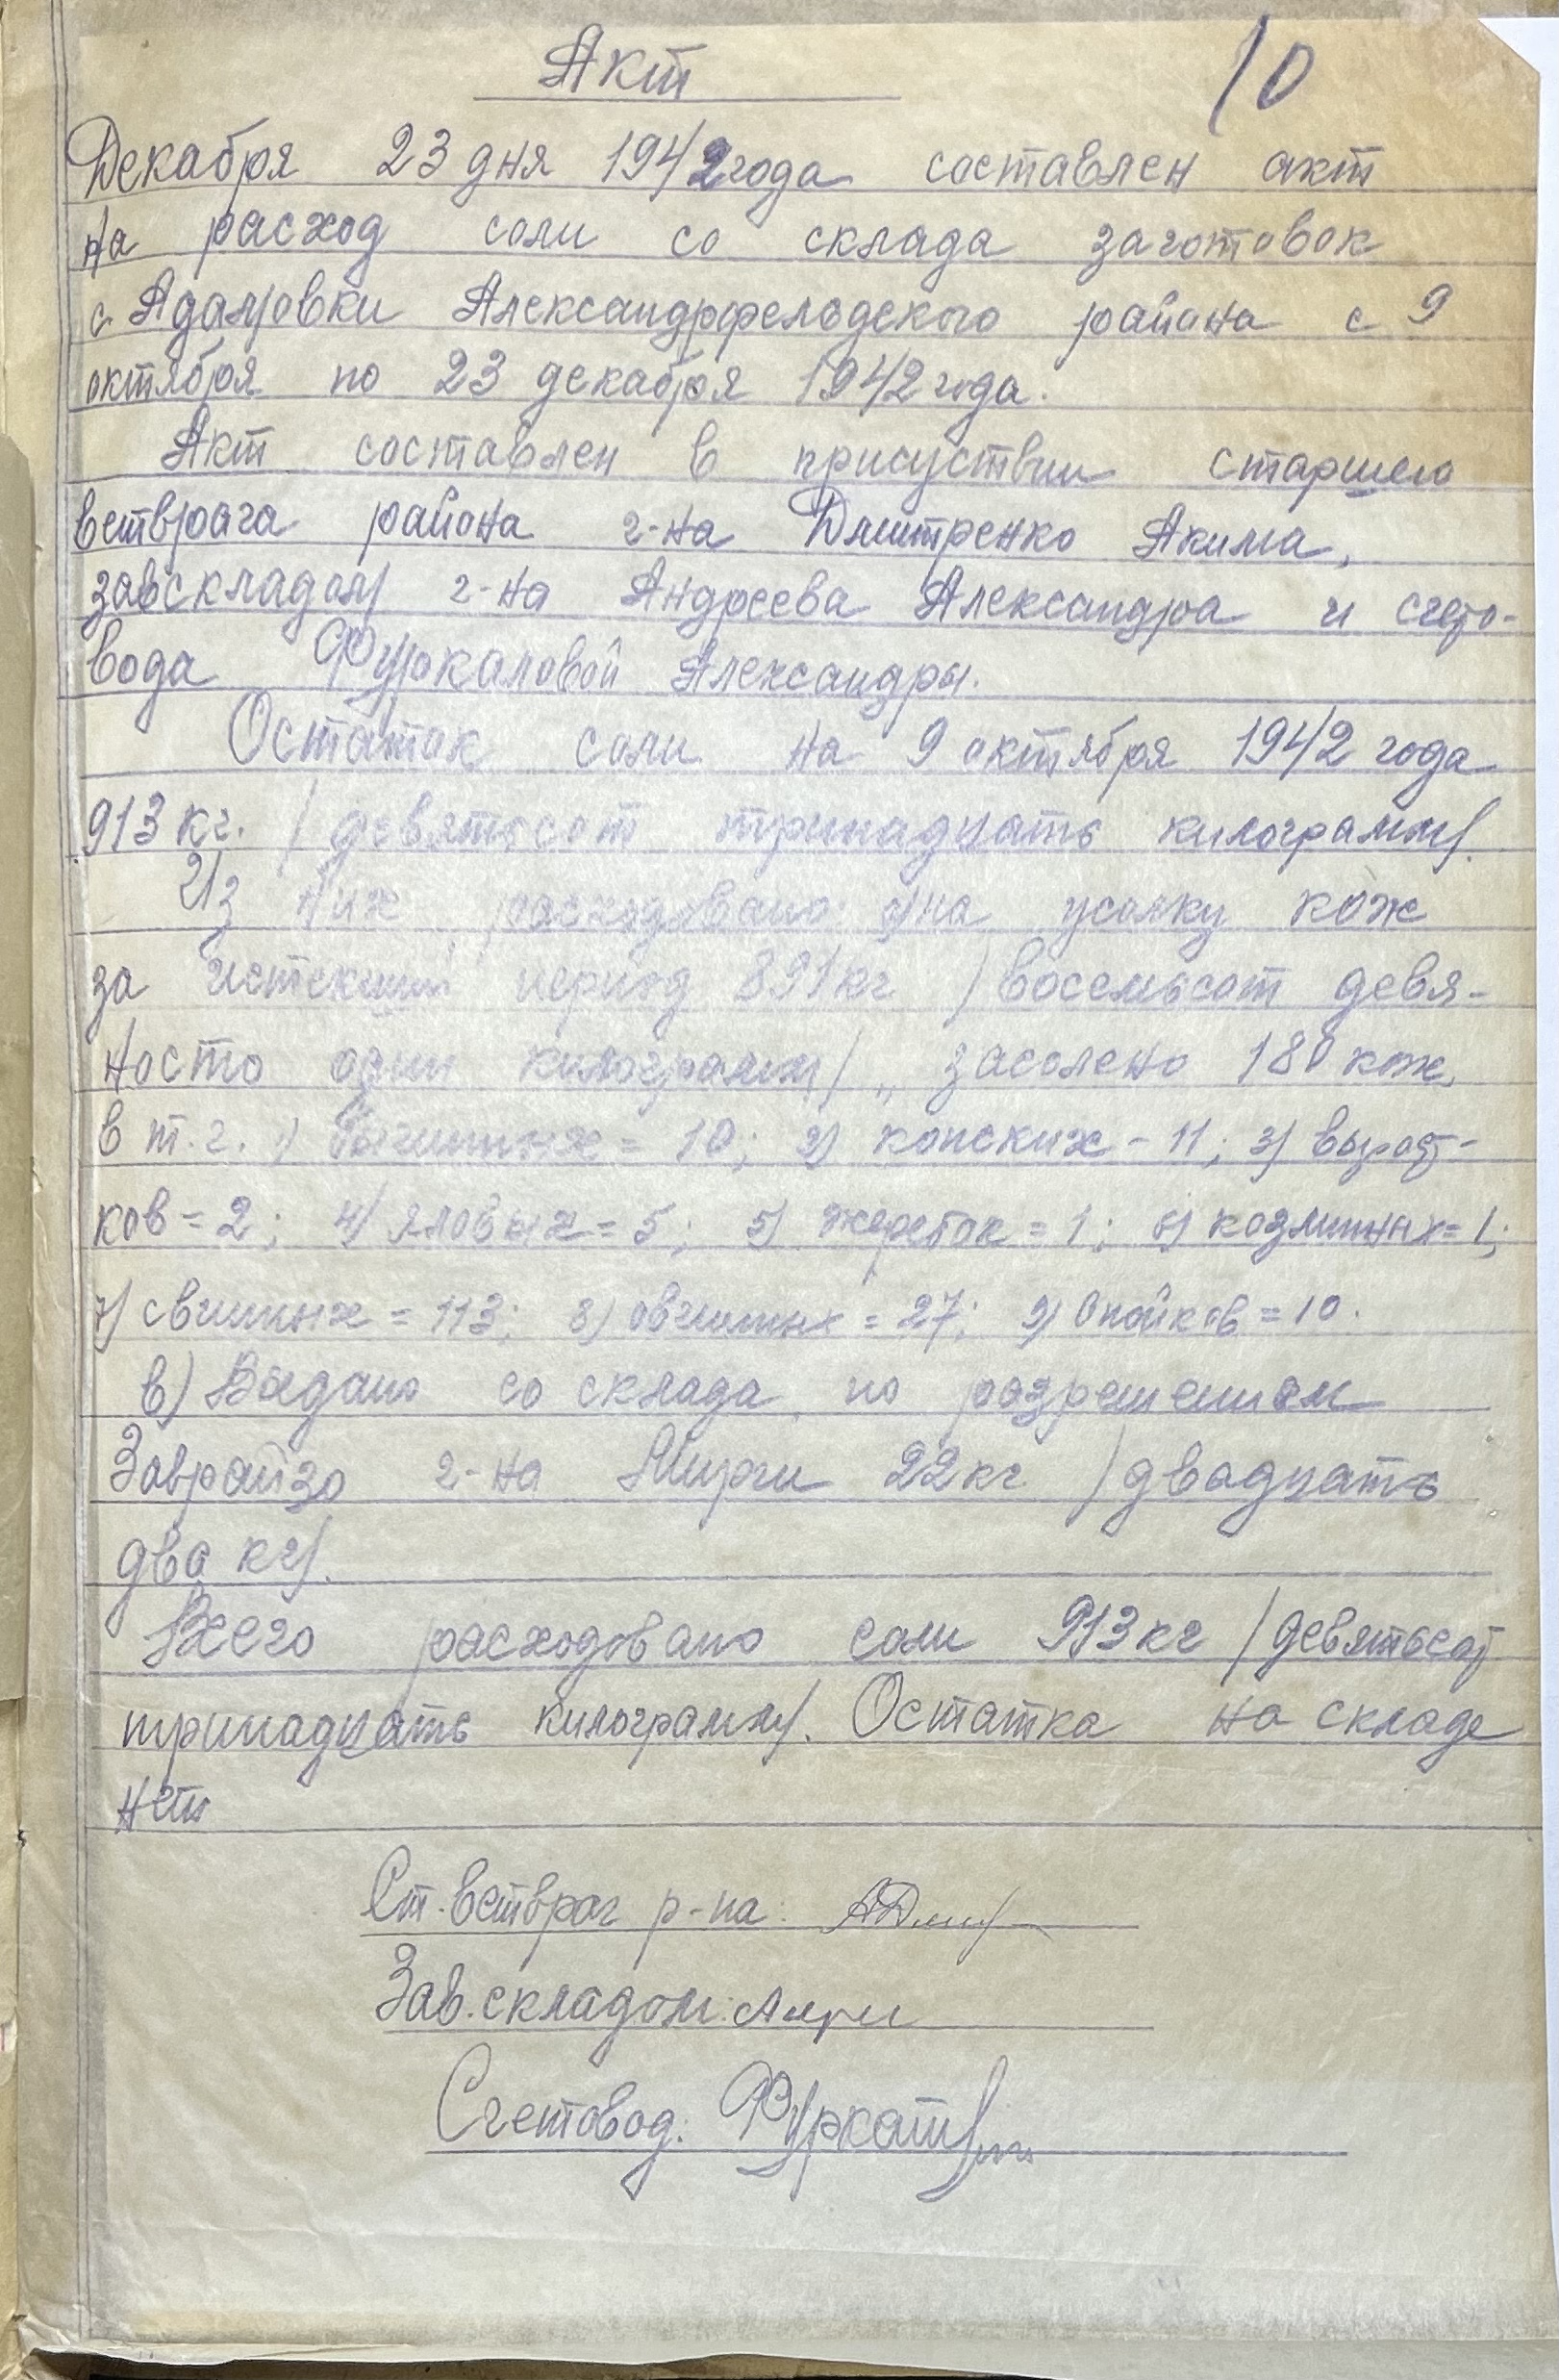 Акт
10
Декабря 23 дня 1942 года составлен акт
на расход соли со склада заготовок
с Адамовки Александрфельдского района с 9
октября по 23 декабря 1942 года.
Акт составлен в присуствии старшего
ветврача района г-на Дмитренко Акима,
завскладом г-на Андреева Александра и счето-
вода Фуркаловой Александры.
Остаток соли на 9 октября 1942 года
913 кг. /девятьсот тринадцать килограмм/.
Из них расходовано: а) на усолку кож
за истекший период 891 кг /восемьсот девя-
носто один килограмм/ „ засолено 180 кож,
в т. ч. 1) = 10; 2) конских - 11; 3) вырост-
ков = 2; 4) яловых = 5; 5) жеребок = 1; 6) козлиных = 1;
7) свиных = 113; 8) овчиных = 27; 9) Опойков = 10.
в) Выдано со склада по разрешениям
Заврайзо г-на 22 кг /двадцать
два кг/.
Всего расходовано соли 913 кг /девятьсот
тринадцать килограмм/. Остатка на складе
нет
Ст. ветврач р-на:
Зав. складом:
Счетовод: